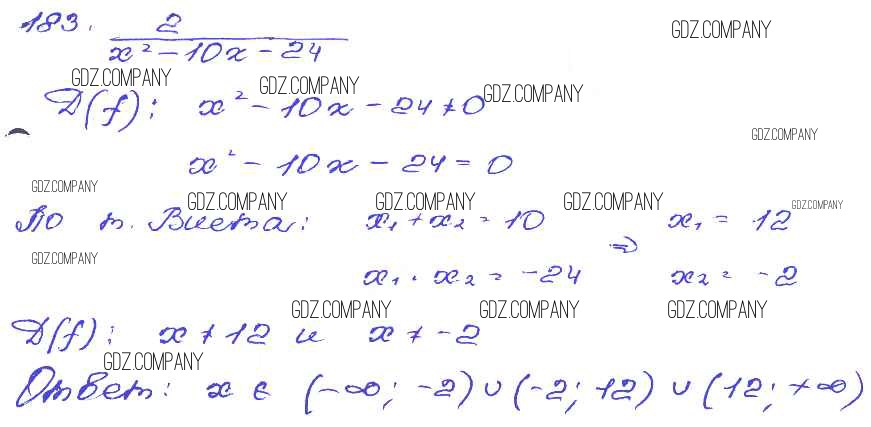 183. 2
x² - 10x - 24
GDZ.COMPANY
GDZ.COMPANY GDZ.COMPANY GDZ.COMPANY
D(f): x² - 10x - 24 ≠ 0
GDZ.COMPANY
x² - 10x - 24 = 0
GDZ.COMPANY
GDZ.COMPANY GDZ.COMPANY GDZ.COMPANY GDZ.COMPANY
По т. Виета: x₁ + x₂ = 10 ⇒ x₁ = 12
GDZ.COMPANY
x₁ · x₂ = -24 x₂ = -2
GDZ.COMPANY GDZ.COMPANY GDZ.COMPANY
D(f): x ≠ 12 и x ≠ -2
GDZ.COMPANY
Ответ: x ∈ (-∞; -2) ∪ (-2; 12) ∪ (12; +∞)